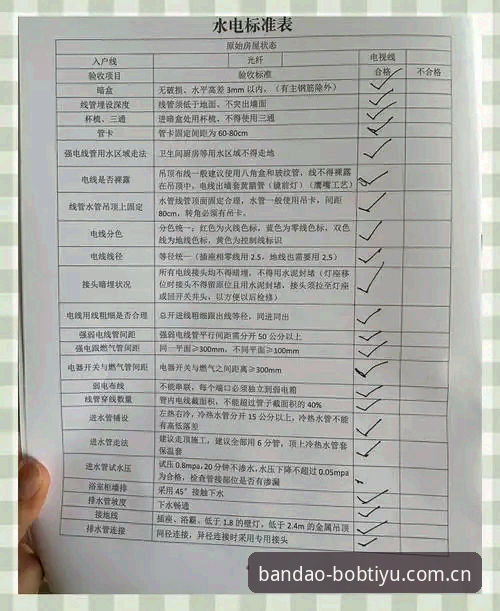 水电标准表
原始房屋状态
入户线 光纤 电视线
验收项目 验收标准 合格 不合格
暗盒 无破损、水平高差3mm以内，（有主钢筋除外）
线管埋设深度 线管须低于地面、不突出墙面
杯梳、三通 进暗盒处用杯梳、不得使用三通
管卡 管卡固定间距为60-80cm
强电线管用水区域走法 卫生间厨房等用水区域不得走地
电线是否裸露 吊顶布线一般建议使用八角盒和玻纹管，线不得裸露
在吊顶中，电线出墙套黄腊管（镜前灯）（鹰嘴工艺）
线管水管吊顶上固定 水管线管顶面固定合理，水管一般使用吊卡，间距
80cm，转角必须有吊卡。
电线分色 分色统一：红色为火线色标，蓝色为零线色标，双色
线为地线色标，黄色为控制线标识
电线线径 等径统一（插座相零线用2.5，地线也需要用2.5）
接头暗埋状况 所有电线接头均不得暗埋，不得用水泥封堵（灯座移
位时接头不得留原位且用水泥封堵，接头须拉至灯座
或回开关井头，以方便以后检修）
电线用线粗细是否合理 总开进线粗细跟出线等径，同进同出
强弱电线管间距 强弱电线管平行间距需分开50公分以上
强电跟燃气管间距 同一平面≥300mm，不同平面≥100mm
电器开关与燃气管间距 电器开关与燃气之间距离≥300mm
弱电布线 不能串联，每个端口必须独立到弱电箱
线管穿线数量 管内电线截面积，不能超过管子截面积的40%
进水管铺设 左热右冷，冷热水管分开15公分以上，冷热水管不能
有高低落差
进水管走法 建议走顶施工，建议全部用6分管，顶上冷热水管套
保温套
进水管试水压 试压0.8mpa，20分钟不渗水，水压下降不超过0.05mpa
为合格，检查管接部位是否有渗漏
浴室柜墙排 采用45°接触下水
排水管坡度 下水畅通
接地线 插座、浴霸、低于1.8的壁灯，低于2.4m的金属吊顶
排水管连接 同径连接，异径连接时采用专用接头
bandao-bobtiyu.com.cn